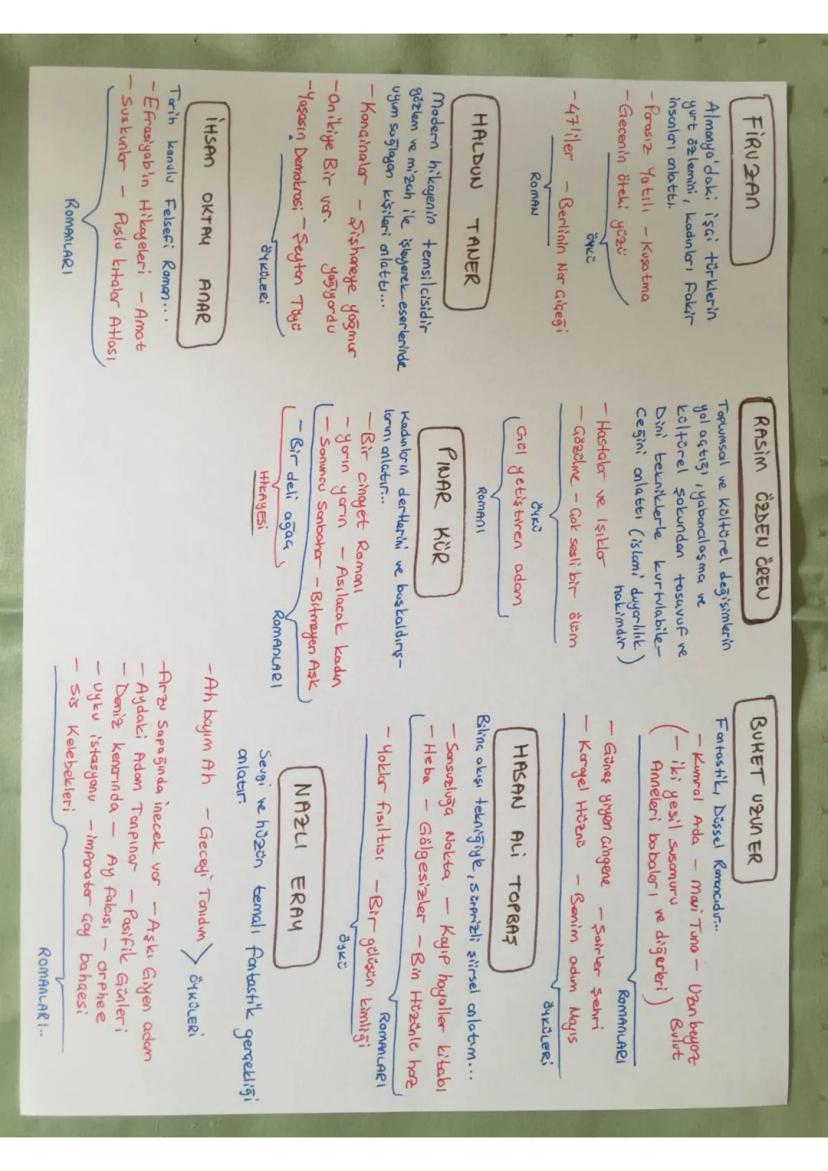 FİRUZAN
Almanya'daki işçi türklerin
yurt özlemini, kadınları fakir
insanları anlattı.
- Parasız Yatılı - Kuşatma
- Gecenin öteki yüzü
ÖYKÜ
- 47'liler - Berlinin Nar Çiçeği
ROMAN
HALDUN TANER
Modern hikayenin temsilcisidir
gözlem ve mizah ile işleyerek eserlerinde
uyum sağlayan kişileri anlattı...
- Konçinalar - Şişhaneye yağmur
yağıyordu
- Onikiye Bir var.
- Yaşasın Demokrasi - Şeytan Tüyü
ÖYKÜLERİ
İHSAN OKTAY ANAR
Tarih konulu Felsefi Roman...
- Efrasiyab'ın Hikayeleri - Amat
- Suskunlar - Puslu kıtalar Atlası
ROMANLARI
RASİM ÖZDEN ÖREN
Toplumsal ve kültürel değişimlerin
yol açtığı, yabancılaşma ve
kültürel şokundan tasavuf ve
Dini tekniklerle kurtulabile-
ceğini anlattı (islami duyarlılık
hakimdir)
- Hastalar ve Işıklar
- Çözülme - Çok sesli bir ölüm
ÖYKÜ
Gül yetiştiren adam
ROMANI
PINAR KÜR
Kadınların dertlerini ve başkaldırış-
larını anlatır...
- Bir cinayet Romanı
- Yarın yarın - Asılacak kadın
- Sonuncu Sonbahar - Bitmeyen Aşk
ROMANLARI
- Bir deli ağaç
HİKAYESİ
BUKET UZUNER
Fantastik, Düssel Romancıdır...
- Kumral Ada - Mavi Tuna - Uzun beyaz
Bulut
(- iki yeşil susamuru
Anneleri babaları ve diğerleri)
ROMANLARI
- Güneş yiyen çingene - Şairler Şehri
- Karayel Hüznü - Benim adım Mayıs
ÖYKÜLERİ
HASAN ALİ TOPBAŞ
Bilinç akışı tekniğiyle, sürprizli şiirsel anlatım...
- Sonsuzluğa Nokta - Kayıp hayaller kitabı
- Heba - Gölgesizler - Bin Hüzünle haz
ROMANLARI
- Yoklar fısıltısı - Bir gülüşün kimliği
ÖYKÜ
NAZLI ERAY
Sevgi ve hüzün temalı fantastik gerçekliği
anlatır.
- Ah bayım Ah - Geceyi Tanıdım
ÖYKÜLERİ
- Arzu Sapağında inecek var - Aşkı Giyen adam
- Aydaki Adam Tanpınar - Pasifik Günleri
- Deniz kenarında - Ay falcısı - orphee
- uyku istasyonu - imparator çay bahçesi
- Sis Kelebekleri
ROMANLARI..